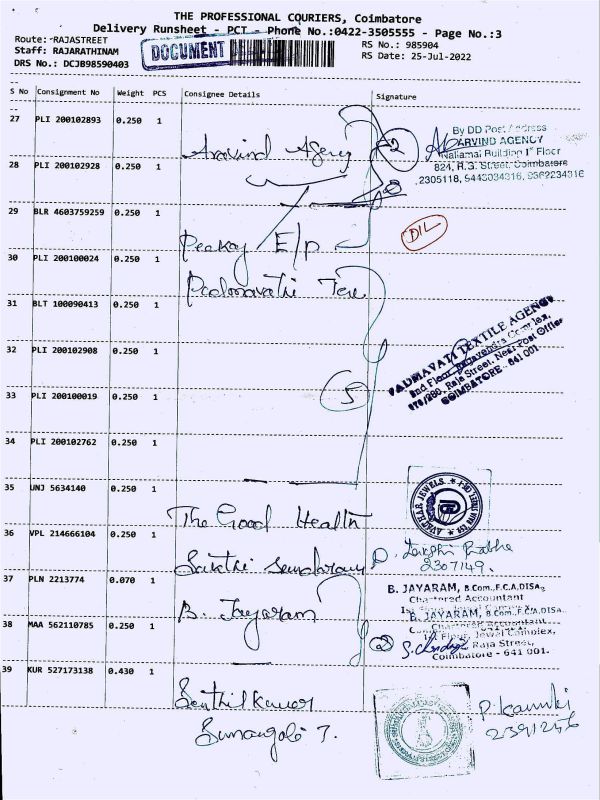 THE PROFESSIONAL COURIERS, Coimbatore
Delivery Runsheet - PCT - Phone No.:0422-3505555 - Page No.:3
Route: RAJASTREET
Staff: RAJARATHINAM
DRS No.: DCJB98590403
DOCUMENT
RS No.: 985904
RS Date: 25-Jul-2022
S No Consignment No Weight PCS Consignee Details Signature
27 PLI 200102893 0.250 1
Aravind Agency
2
By DD Post Address
ARVIND AGENCY
Nallamai Building 1st Floor
824, R.G. Street, Coimbatore
2305118, 9443034316, 9362234316
28 PLI 200102928 0.250 1
29 BLR 4603759259 0.250 1
Peekay E/p
DIL
30 PLI 200100024 0.250 1
Padmavathi Tex
31 BLT 100090413 0.250 1
PADMAVATI TEXTILE AGENCY
2nd Floor, Ragavendra Complex,
Raja Street, Near Post Office
COIMBATORE - 641 001
32 PLI 200102908 0.250 1
33 PLI 200100019 0.250 1
5
34 PLI 200102762 0.250 1
35 UNJ 5634140 0.250 1
The Good Health
36 VPL 214666104 0.250 1
Sakthi Sundaram
2307149.
37 PLN 2213774 0.070 1
B. Jayaram
B. JAYARAM, B.Com.,F.C.A,DISA.,
Chartered Accountant
B. JAYARAM, B.Com.,F.C.A,DISA.
Chartered Accountant
1st Floor, Jewel Complex,
Raja Street,
Coimbatore - 641 001.
38 MAA 562110785 0.250 1
2
39 KUR 527173138 0.430 1
Senthil Kumar
Sumangali J.
2391246